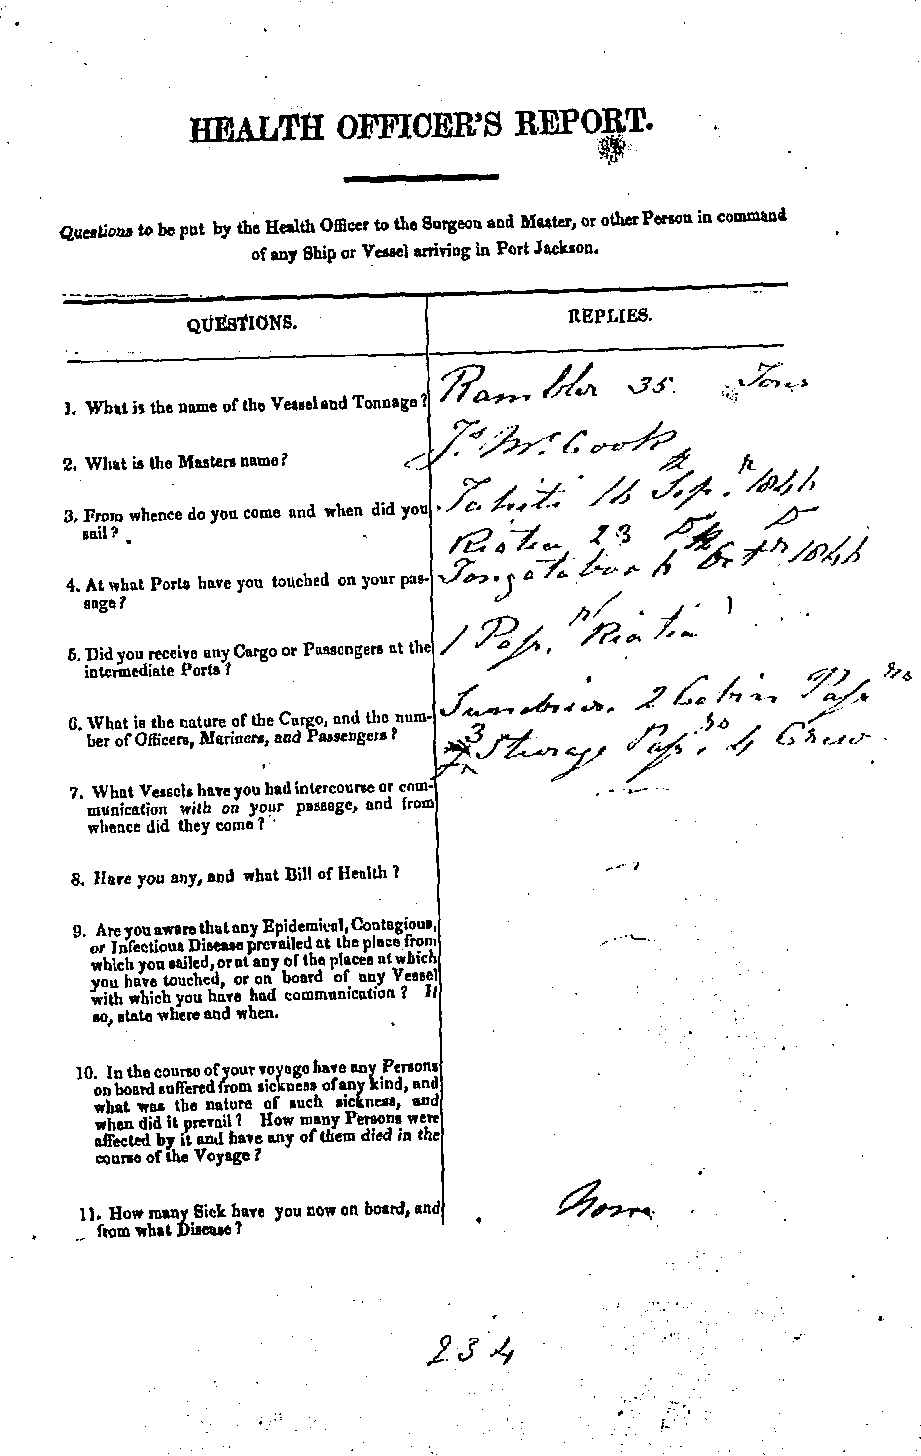 HEALTH OFFICER'S REPORT.
Questions to be put by the Health Officer to the Surgeon and Master, or other Person in command
of any Ship or Vessel arriving in Port Jackson.
QUESTIONS.
REPLIES.
1. What is the name of the Vessel and Tonnage?
Rambler 35 Tons
2. What is the Masters name?
Js McCook
3. From whence do you come and when did you
sail?
Tahiti 14 Sepr 1844
Riatea 23 Do Do
4. At what Ports have you touched on your pas-
sage?
Tongataboo 4 Octr 1844
5. Did you receive any Cargo or Passengers at the
intermediate Ports?
1 Pasr Riatia
6. What is the nature of the Cargo, and the num-
ber of Officers, Mariners, and Passengers?
Sundries. 2 Cabin Pasrs
3 Sturage Pasrs. 4 Crew
7. What Vessels have you had intercourse or com-
munication with on your passage, and from
whence did they come?
8. Have you any, and what Bill of Health?
9. Are you aware that any Epidemical, Contagious,
or Infectious Disease prevailed at the place from
which you sailed, or at any of the places at which
you have touched, or on board of any Vessel
with which you have had communication? If
so, state where and when.
10. In the course of your voyage have any Persons
on board suffered from sickness of any kind, and
what was the nature of such sickness, and
when did it prevail? How many Persons were
affected by it and have any of them died in the
course of the Voyage?
11. How many Sick have you now on board, and
from what Disease?
None
234